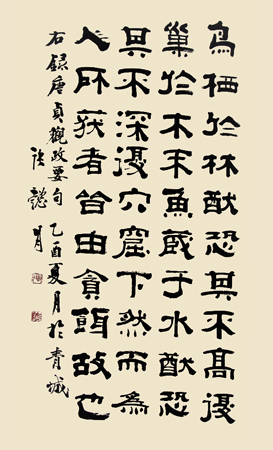 鳥栖於林猷恐其不高復
巢於木末魚藏于水猷恐
其不深復穴窟下然而為
人所获者皆由貪餌故也
右録唐貞觀政要句 乙酉夏月於青城